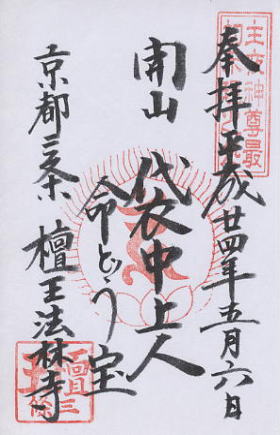 奉拝 平成廿四年五月六日
開山 袋中上人
命どう宝
京都三条 檀王法林寺
主夜神尊最